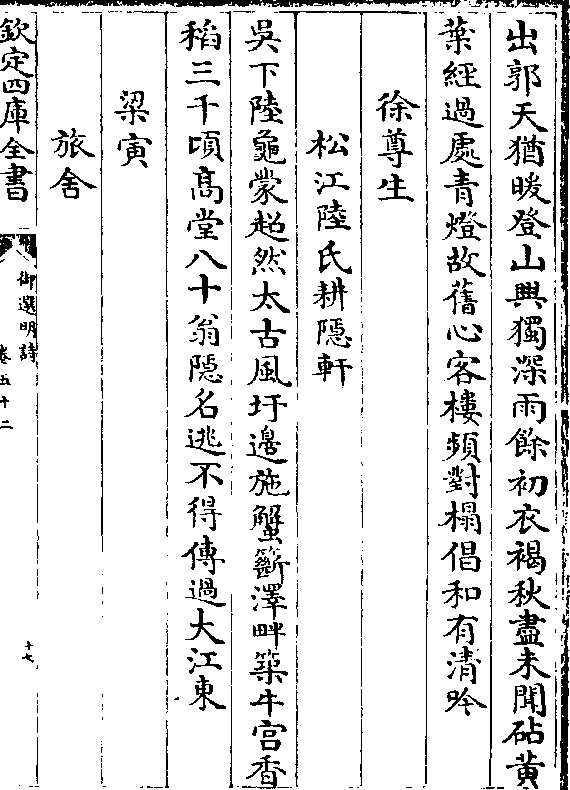 出郭天猶暖登山興獨深雨餘初衣褐秋盡未聞砧黄
葉經過處青燈故舊心客樓頻對榻倡和有清吟
徐尊生
松江陸氏耕隱軒
吳下陸龜蒙超然太古風圩邊施蟹籪澤畔築牛宫香
稻三千頃髙堂八十翁隠名逃不得傳過大江東
梁寅
旅舍
欽定四庫全書
御選明詩
卷五十二
十七